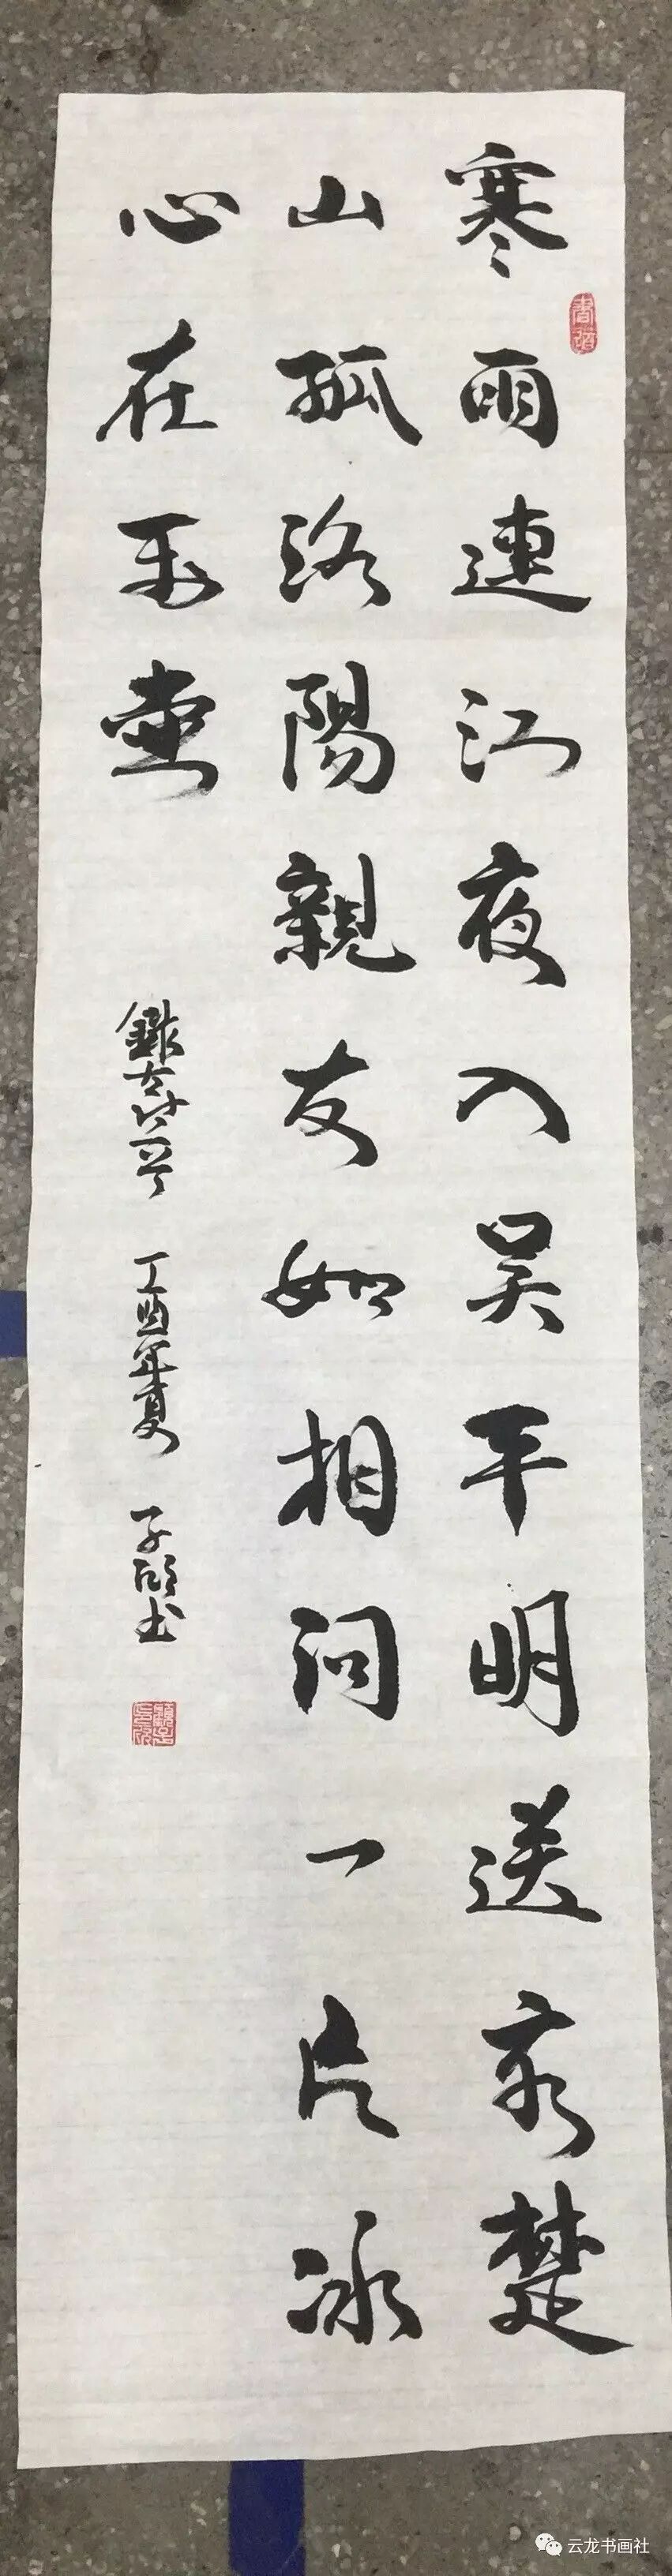 寒雨連江夜入吴平明送客楚
山孤洛陽親友如相问一片冰
心在玉壺
錄古诗一首 丁酉年夏 子碩书
書道
云龙书画社